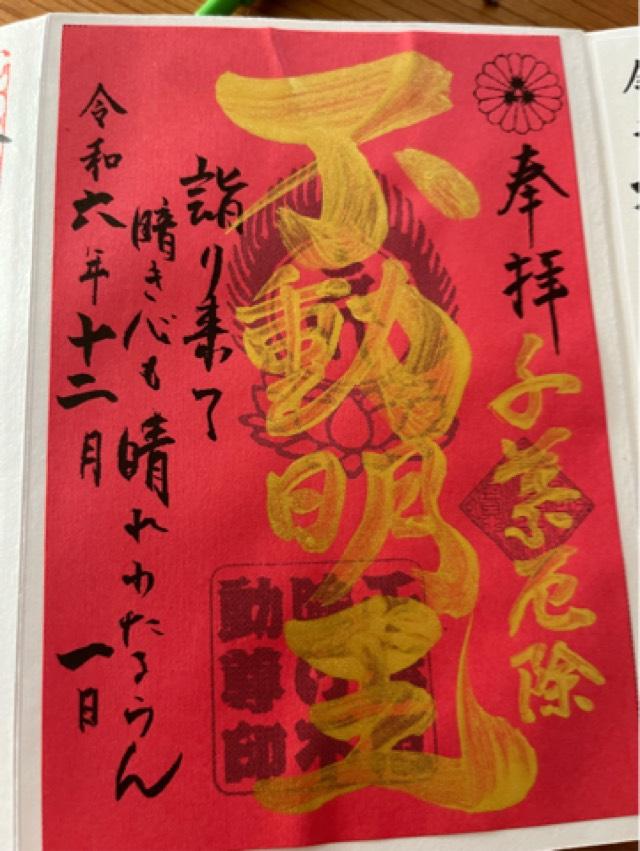 奉拝
千葉厄除
不動明王
詣り来て
暗き心も晴れわたるらん
令和六年十二月一日
動尊印